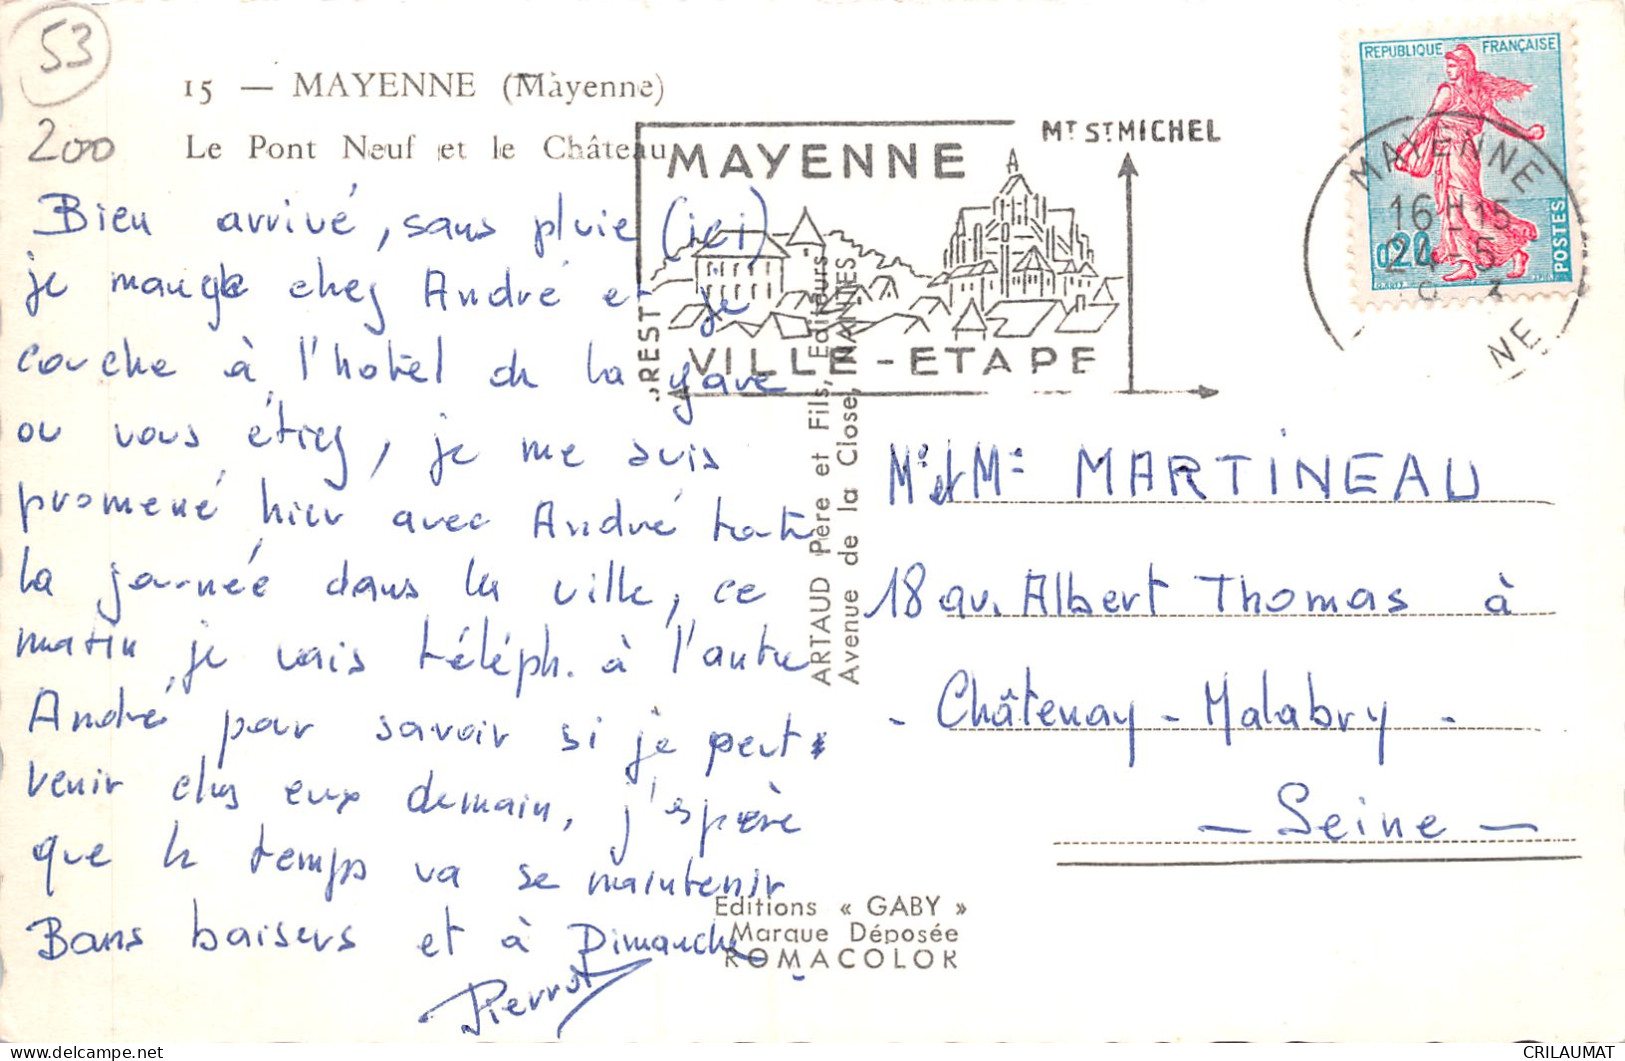 53
200
15 — MAYENNE (Mayenne)
Le Pont Neuf et le Château
Bien arrivé, sans pluie (ici)
je mange chez André et je
couche à l'hotel de la gare
ou vous étiez, je me suis
promené hier avec André toute
la journée dans la ville, ce
matin je vais téléph. à l'autre
André pour savoir si je peut
venir chez eux demain, j'espère
que le temps va se maintenir
Bons baisers et à Dimanche
Pierrot
MAYENNE
VILLE-ETAPE
BREST
MT ST MICHEL
ARTAUD Père et Fils, Editeurs
Avenue de la Close, NANTES
REPUBLIQUE FRANÇAISE
0,20
POSTES
MAYENNE
16H15
24-5
Mr et Me MARTINEAU
18 av. Albert Thomas à
- Châtenay-Malabry -
- Seine -
Editions « GABY »
Marque Déposée
ROMACOLOR
CRILAUMAT